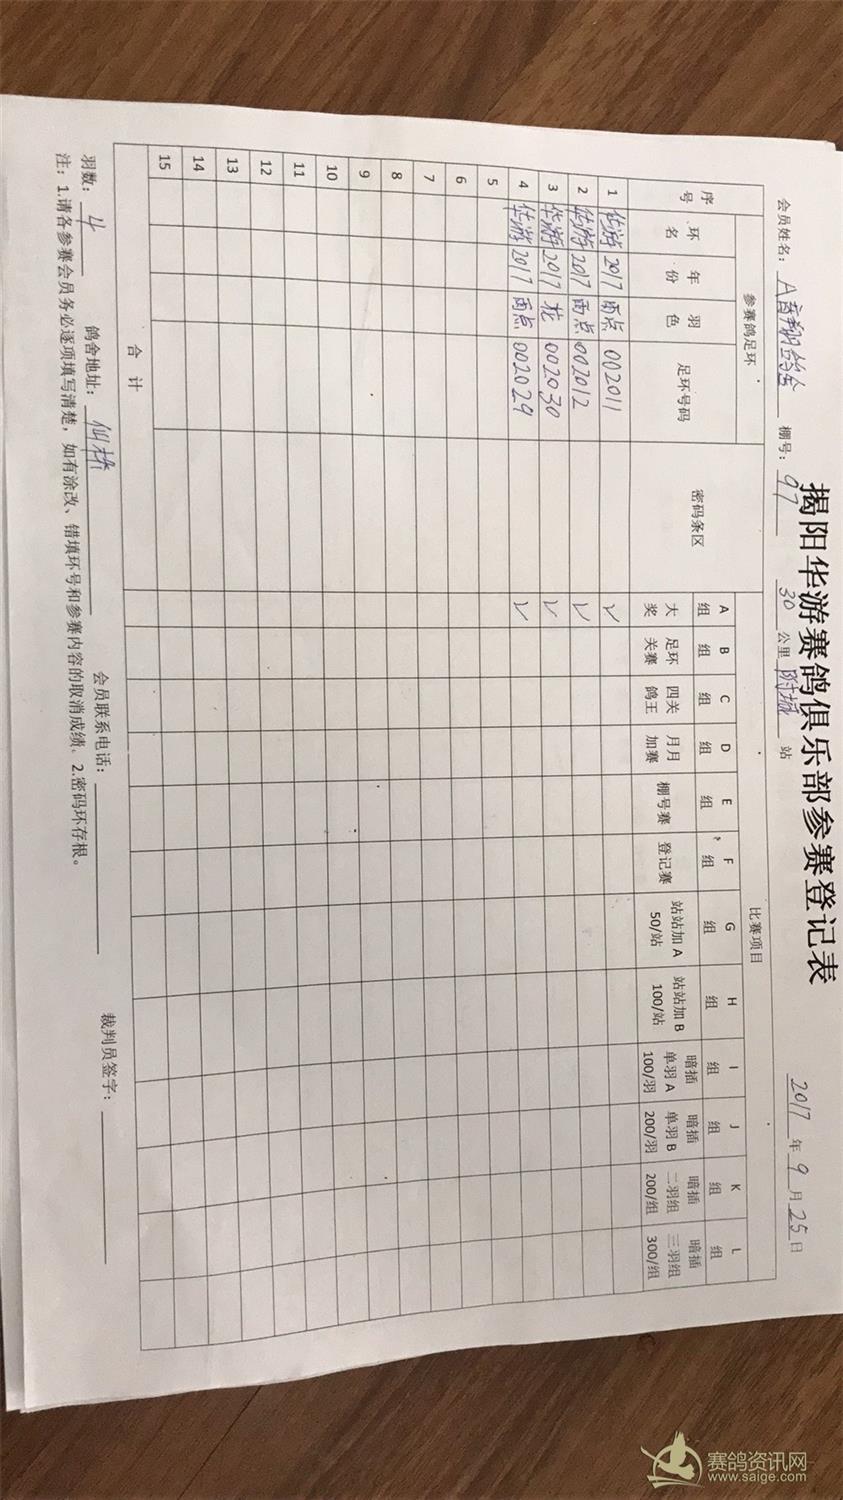 揭阳华游赛鸽俱乐部参赛登记表
会员姓名： 棚号：97 30公里附城站 2017年9月25日
序号 参赛鸽足环 密码条区 比赛项目
环名 年份 羽色 足环号码 A组 B组 C组 D组 E组 F组 G组 H组 I组 J组 K组 L组
大奖 足环关赛 四关鸽王 月月加赛 棚号赛 登记赛 站站加A 50/站 站站加B 100/站 暗插单羽A 100/羽 暗插单羽B 200/羽 暗插二羽组 200/组 暗插三羽组 300/组
1 华游 2017 雨点 002011 √
2 华游 2017 雨点 002012 √
3 华游 2017 花 002030 √
4 华游 2017 雨点 002029 √
5
6
7
8
9
10
11
12
13
14
15
合计
羽数：4 鸽舍地址：仙桥 会员联系电话： 裁判员签字：
注：1.请各参赛会员务必逐项填写清楚，如有涂改、错填环号和参赛内容的取消成绩。2.密码环存根。
赛鸽资讯网
www.saige.com